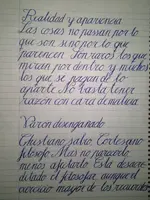 Realidad y apariencia
Las cosas no passan por lo
que son sino por lo que
parencen. Son raros los que
miran por dentro, y muchos
los que se pagan de lo
aparte No basta tener
razon con cara de malicia
Varon desengañado
Christiano sabio Cortesano
filosofo. Mas no parecerlo
menos afectarlo Está desacre
ditado el filosofar, aunque el
exercicio mayor de los